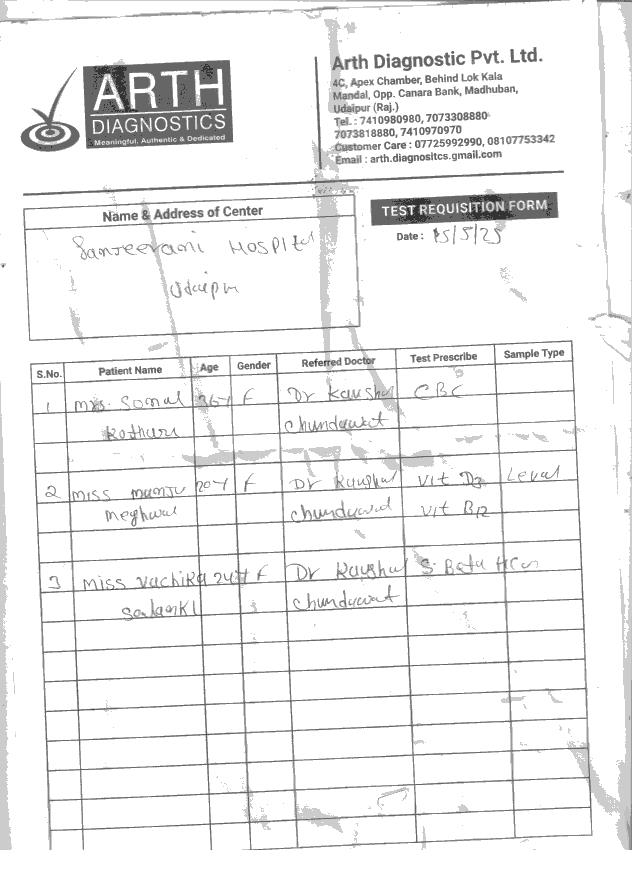 ARTH
DIAGNOSTICS
Meaningful, Authentic & Dedicated
Arth Diagnostic Pvt. Ltd.
4C, Apex Chamber, Behind Lok Kala
Mandal, Opp. Canara Bank, Madhuban,
Udaipur (Raj.)
Tel. : 7410980980, 7073308880
7073818880, 7410970970
Customer Care : 07725992990, 08107753342
Email : arth.diagnositcs.gmail.com
Name & Address of Center
TEST REQUISITION FORM
Date : 15/5/25
Sanjeevani Hospital
Udaipur
S.No. Patient Name Age Gender Referred Doctor Test Prescribe Sample Type
1 Mrs. Somal 36y F Dr Kaushal CBC
Kothari Chundawat
2 Miss Manju 20y F Dr Kaushal Vit D3 Leval
Meghwal Chundawat Vit B12
3 Miss Vachika 24y F Dr Kaushal S. Beta HCG
Solanki Chundawat